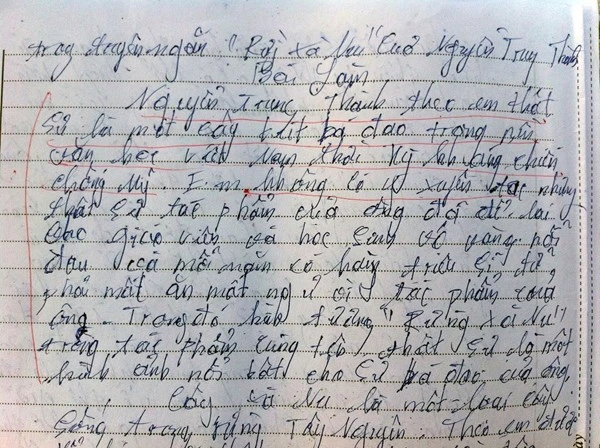 trong truyện ngắn "Rừng xà Nu" Của Nguyễn Trung Thành
Bài Làm
Nguyễn Trung Thành theo em thật
sự là một cây bút bá đạo trong nền
văn học việt Nam thời kỳ kháng chiến
chống Mỹ. E.m không có ý xuyên tạc nhưng
thật sự tác phẩm của ông đã để lại
các giáo viên và học sinh vô vàng nỗi
đau cả mỗi năm có hàng triệu sĩ tử
phải mất ăn mất ngủ vì tác phẩm của
ông. Trong đó hình tượng "Rừng xà Nu"
trong tác phẩm cùng tên thật sự là một
hình ảnh nổi bật cho sự bá đạo của ông
Cây xà Nu là một loại cây
Sống trong rừng Tây Nguyên Theo em được